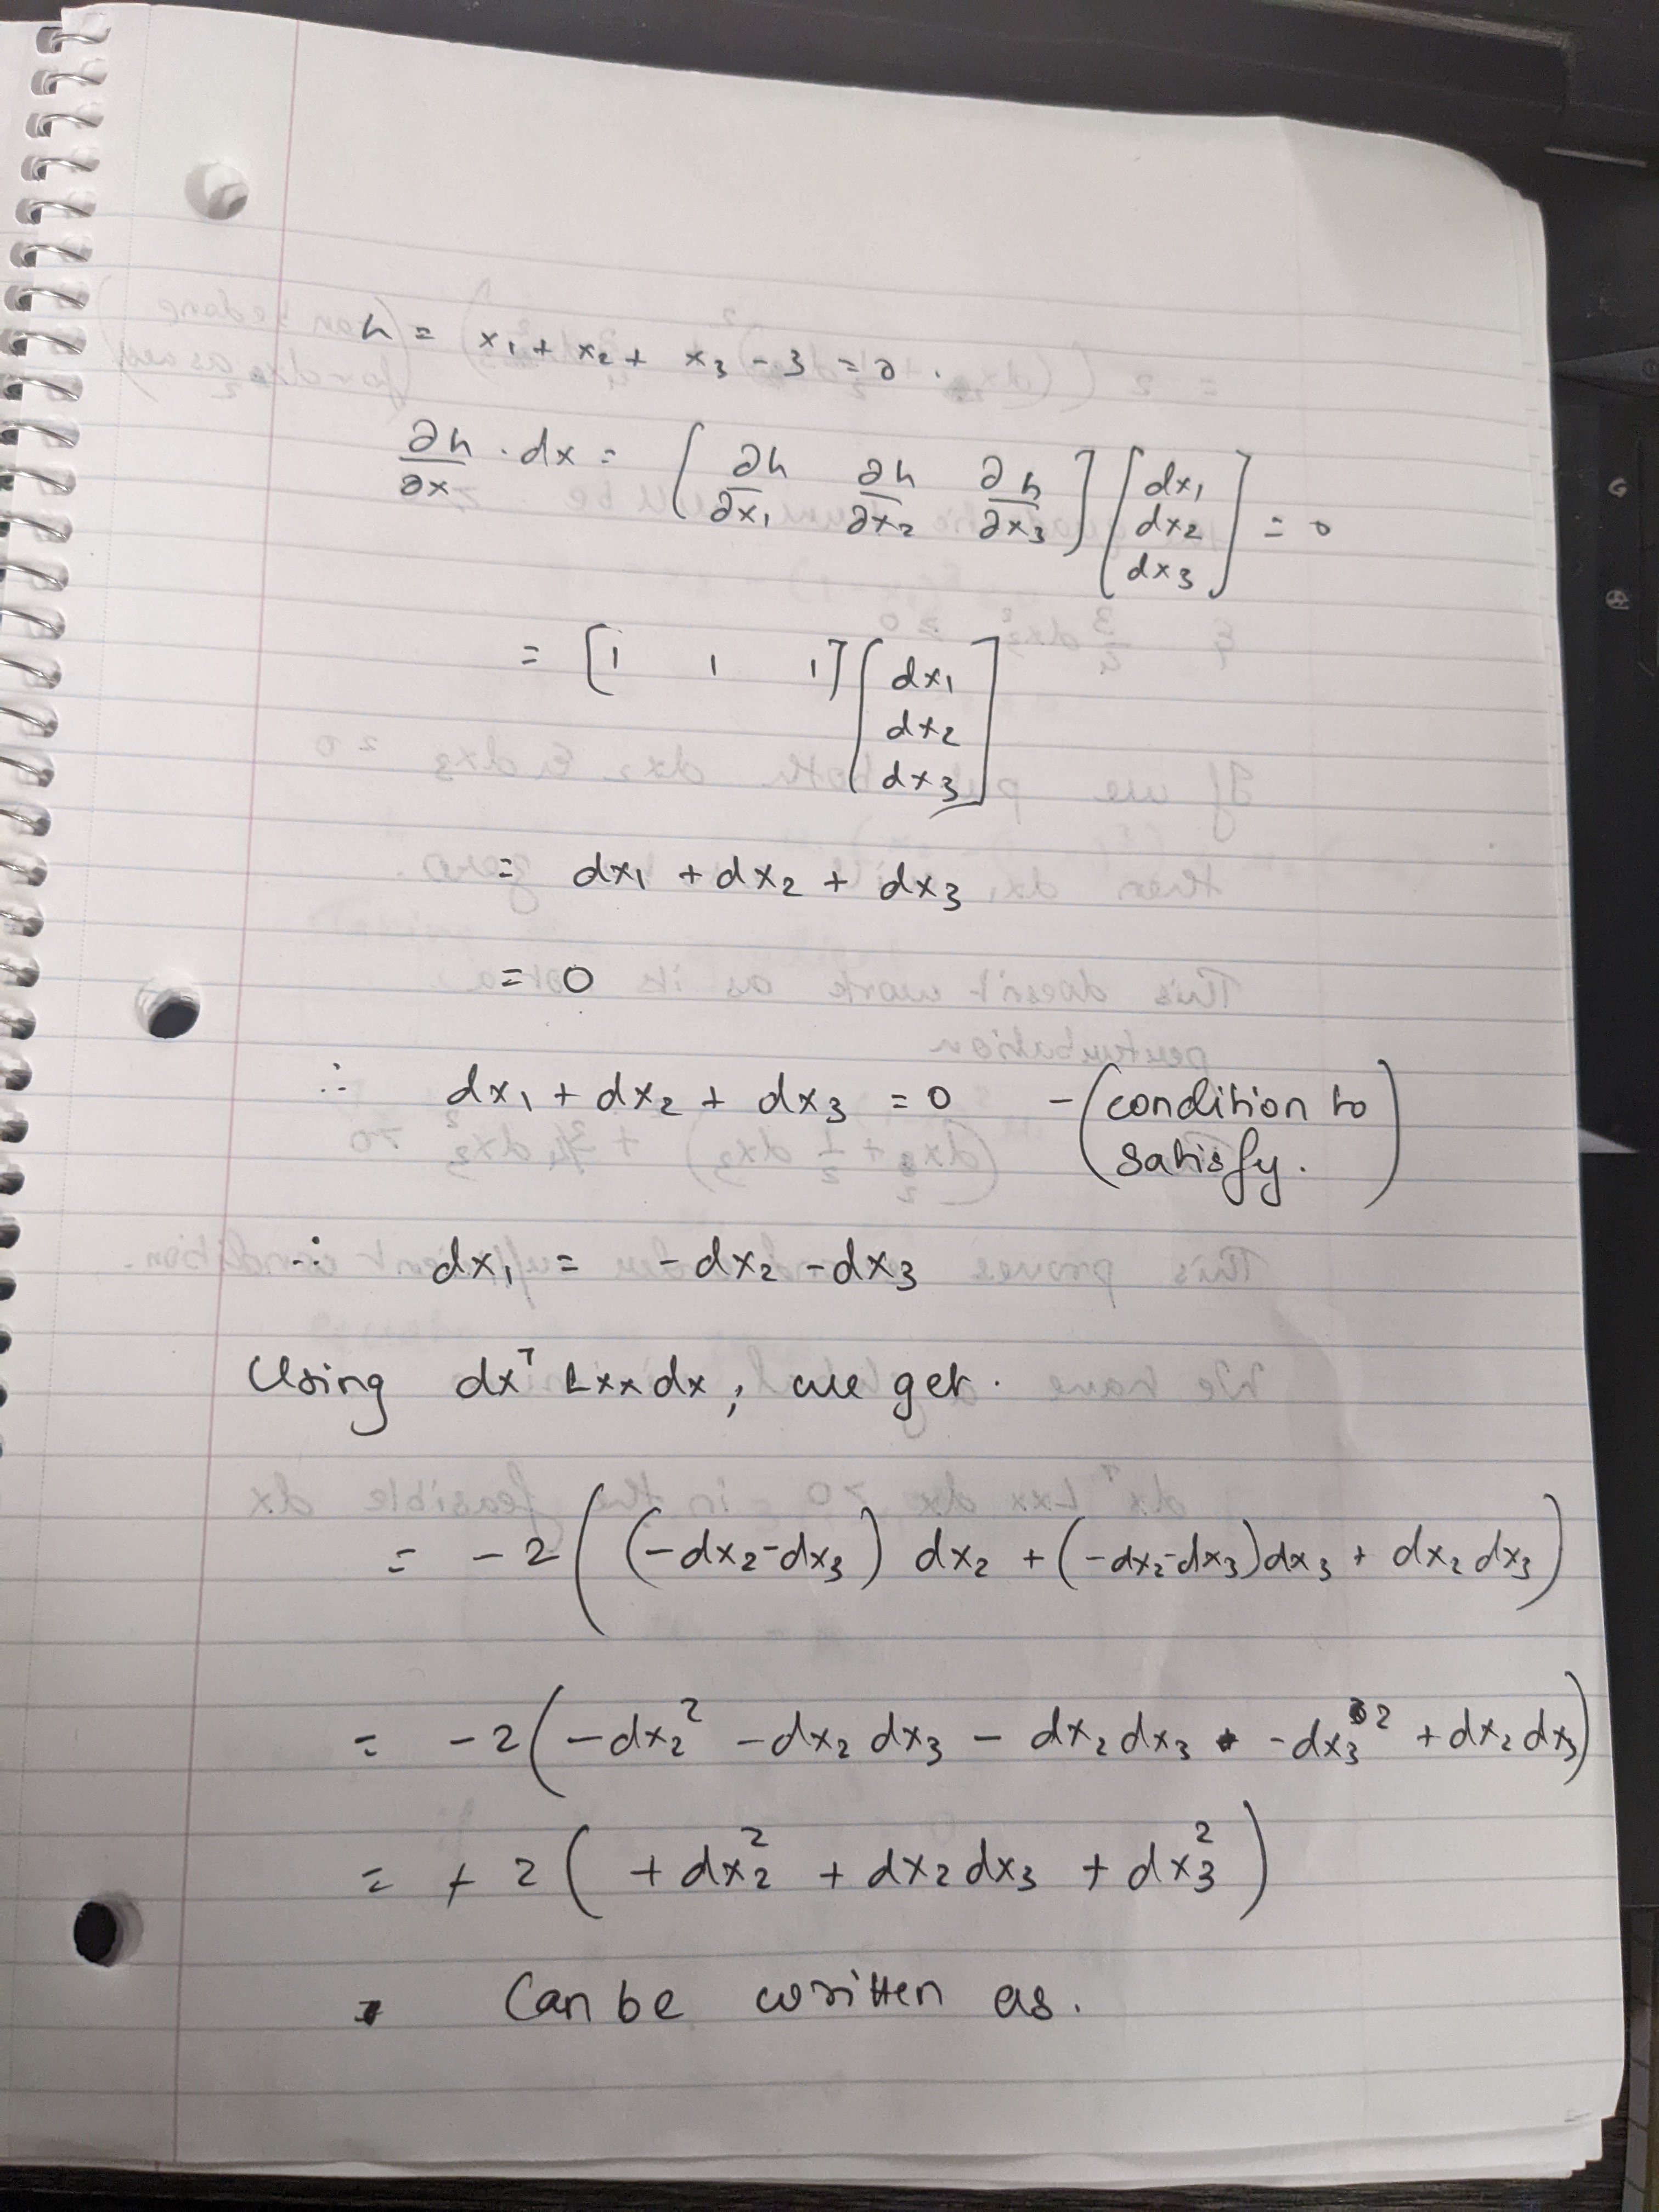 h = x₁ + x₂ + x₃ - 3 = 0 .
∂h/∂x · dx = [ ∂h/∂x₁ ∂h/∂x₂ ∂h/∂x₃ ] [ dx₁ dx₂ dx₃ ] = 0
= [ 1 1 1 ] [ dx₁ dx₂ dx₃ ]
= dx₁ + dx₂ + dx₃
= 0
∴ dx₁ + dx₂ + dx₃ = 0 - (condition to satisfy.)
∴ dx₁ = - dx₂ - dx₃
Using dxᵀ Lxx dx, we get.
= - 2 ( (-dx₂-dx₃) dx₂ + (-dx₂-dx₃) dx₃ + dx₂ dx₃ )
= - 2 ( -dx₂² - dx₂ dx₃ - dx₂ dx₃ - dx₃² + dx₂ dx₃ )
= + 2 ( + dx₂² + dx₂ dx₃ + dx₃² )
Can be written as.